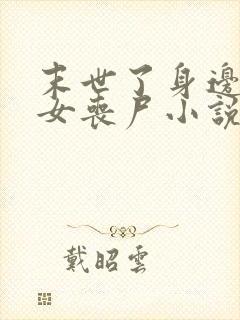 末世了身邊
女喪尸小説
戴昭雲